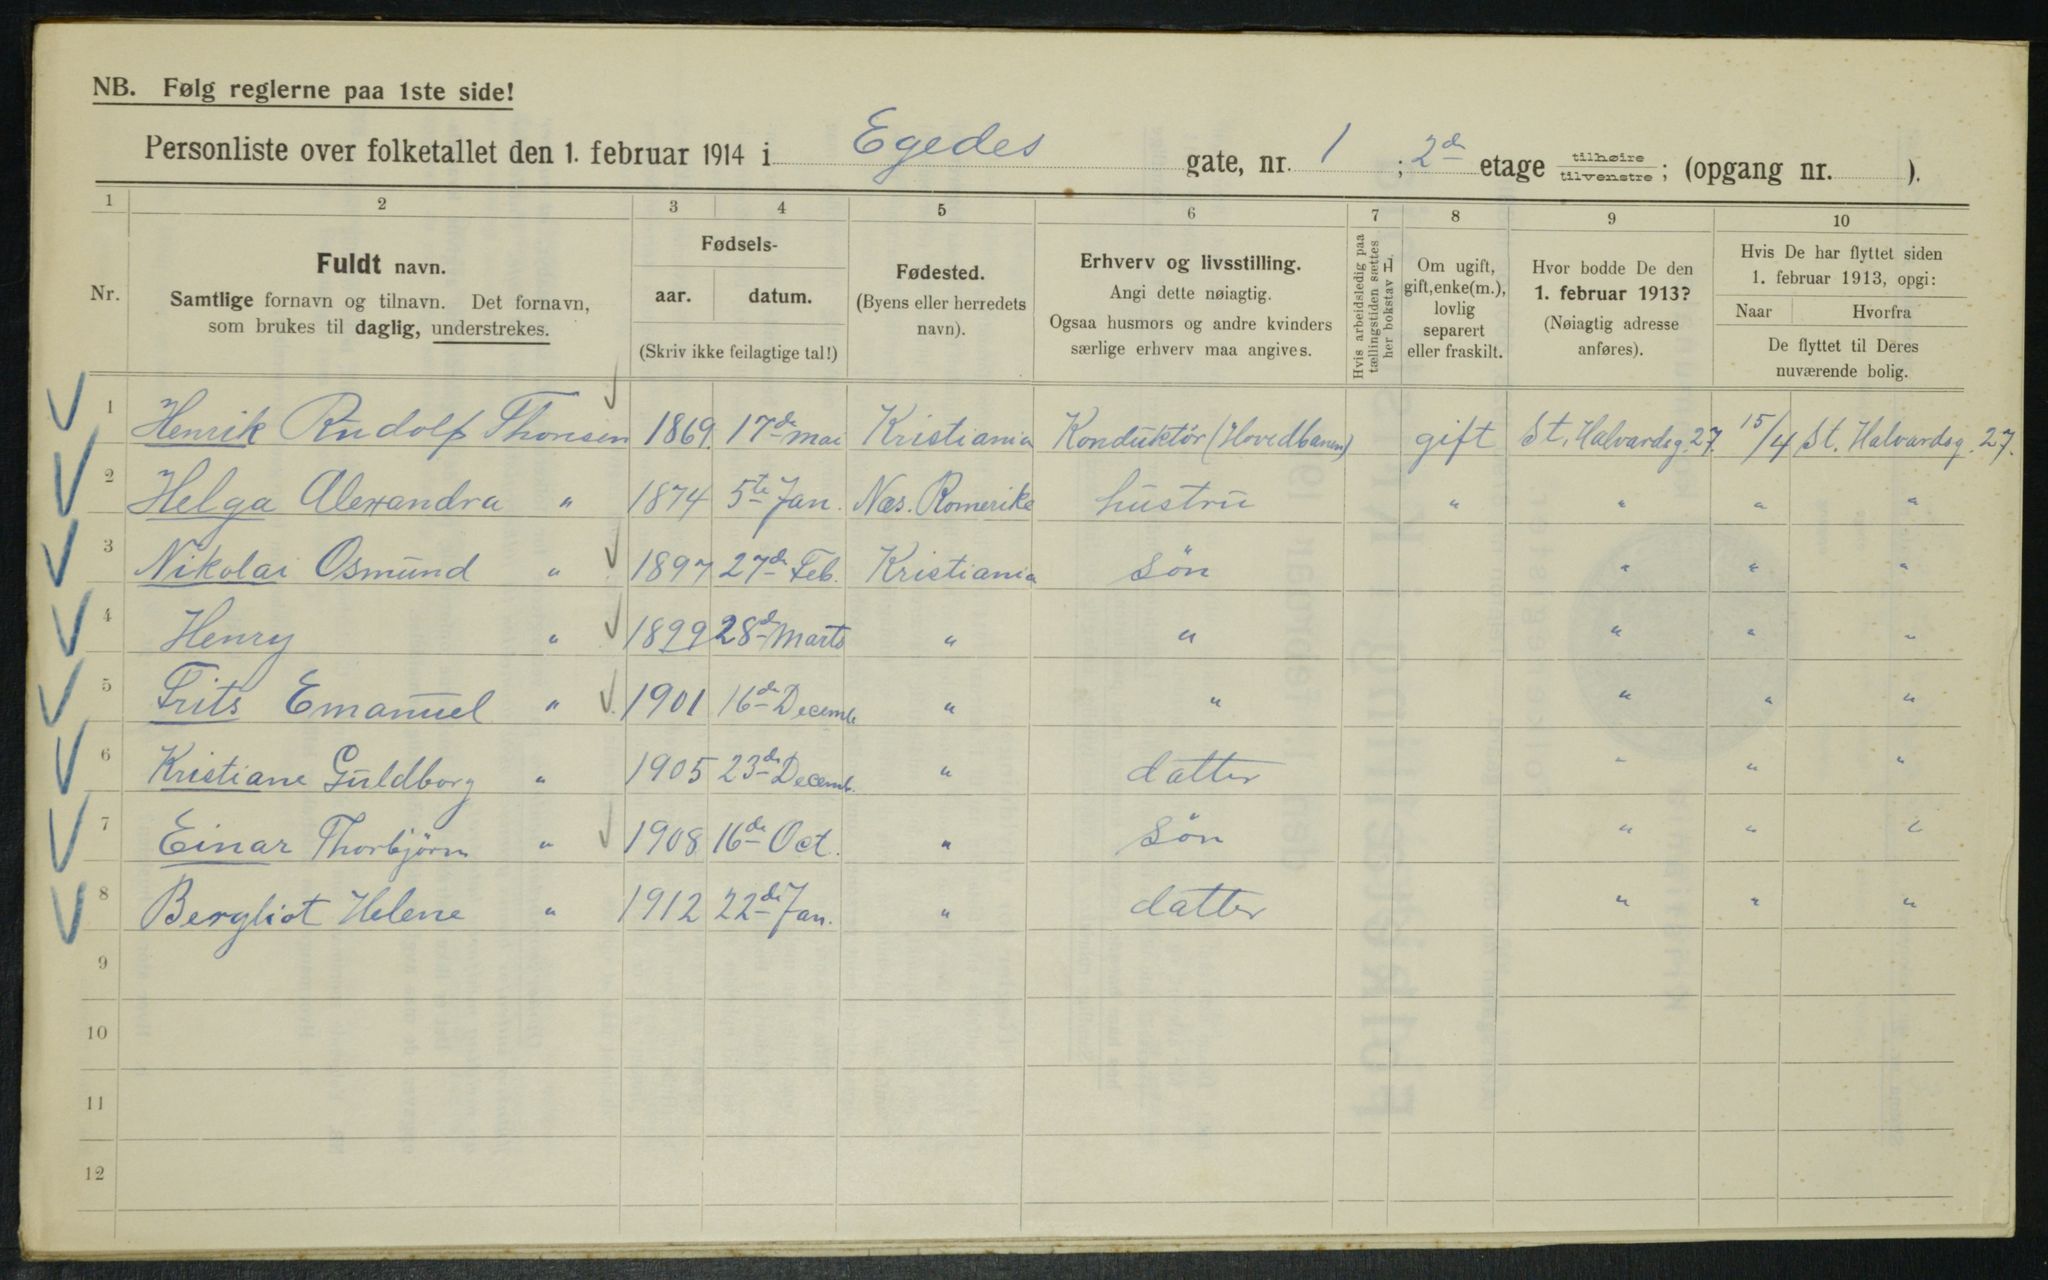 NB. Følg reglerne paa 1ste side!
Personliste over folketallet den 1. februar 1914 i Egedes gate, nr. 1 ; 2den etage tilhøire tilvenstre ; (opgang nr. ).
1 2 3 4 5 6 7 8 9 10
Nr.
Fuldt navn.
Samtlige fornavn og tilnavn. Det fornavn,
som brukes til daglig, understrekes.
Fødsels-
aar. datum.
(Skriv ikke feilagtige tal!)
Fødested.
(Byens eller herredets
navn).
Erhverv og livsstilling.
Angi dette nøiagtig.
Ogsaa husmors og andre kvinders
særlige erhverv maa angives.
Hvis arbeidsledig paa
tællingstiden sættes
her bokstav L.
Om ugift,
gift, enke(m.),
lovlig
separert
eller fraskilt.
Hvor bodde De den
1. februar 1913?
(Nøiagtig adresse
anføres).
Hvis De har flyttet siden
1. februar 1913, opgi:
Naar Hvorfra
De flyttet til Deres
nuværende bolig.
1 Henrik Rudolf Thonsen 1869. 17de mai Kristiania Konduktör (Hovedbanen) gift St. Halvardsg. 27. 15/4 St. Halvardsg. 27.
2 Helga Alexandra " 1874 5te Jan. Næs. Romerike hustru " " " "
3 Nikolai Osmund " 1897 27de Feb. Kristiania sön " " "
4 Henry " 1899 28de Marts " " " " "
5 Frits Emanuel " 1901 16de Decemb. " " " " "
6 Kristiane Guldborg " 1905 23de Decemb. " datter " " "
7 Einar Thorbjörn " 1908 16de Oct. " sön " " "
8 Bergliot Helene " 1912 22de Jan. " datter " " "
9
10
11
12